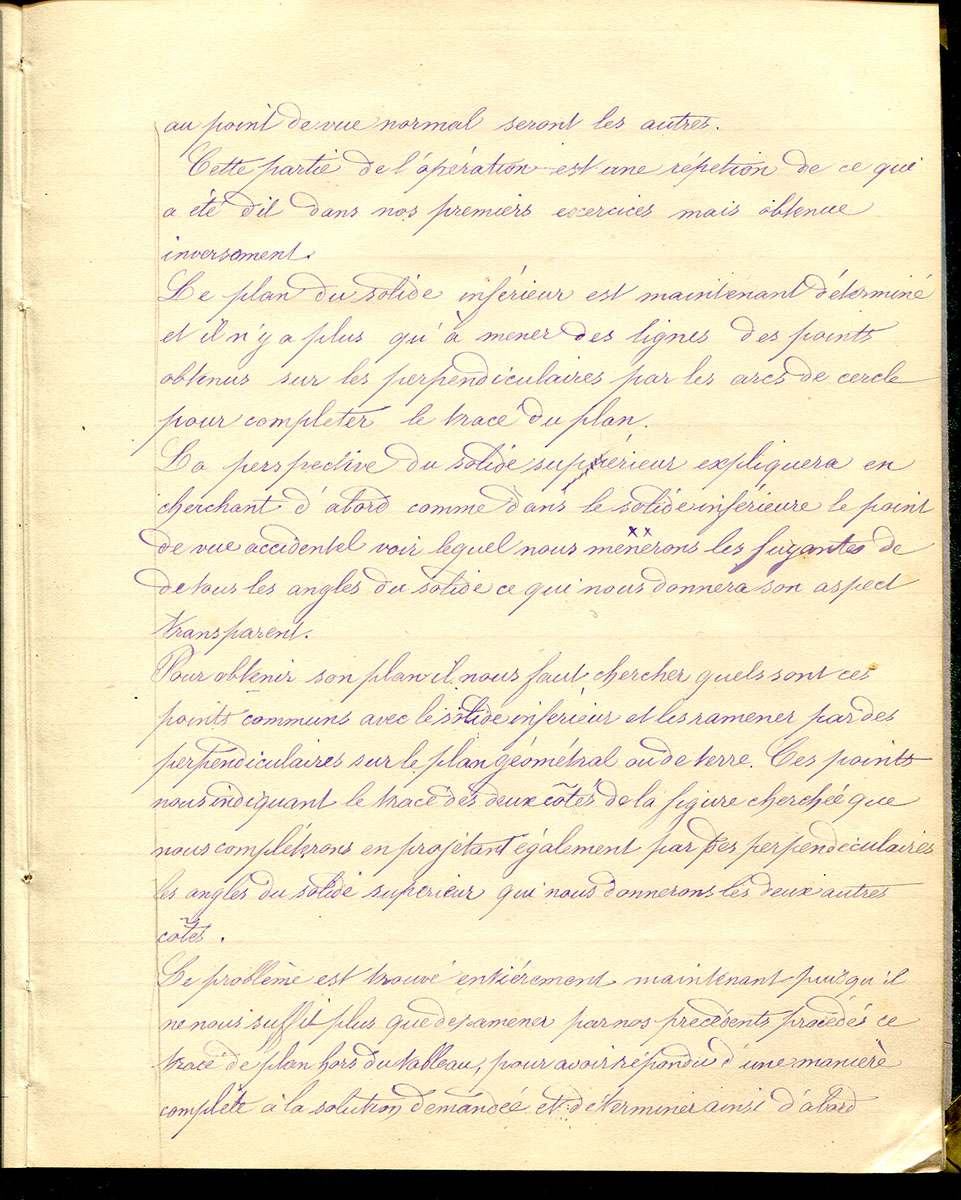 au point de vue normal seront les autres.
Cette partie de l'opération est une répétion de ce qui
a été dit dans nos premiers exercices mais obtenue
inversement.
Le plan du solide inférieur est maintenant déterminé
et il n'y a plus qu'à mener des lignes des points
obtenus sur les perpendiculaires par les arcs de cercle
pour completer le tracé du plan.
La perspective du solide supérieur expliquera en
cherchant d'abord comme dans le solide inférieure le point
de vue accidentel voir lequel nous mènerons les fuyantes de
de tous les angles du solide ce qui nous donnera son aspect
transparent.
Pour obtenir son plan il nous faut chercher quels sont ces
points communs avec le solide inférieur et les ramener par des
perpendiculaires sur le plan géométral ou de terre. Ces points
nous indiquant le tracé des deux côtés de la figure cherchée que
nous complèterons en projetant également par des perpendiculaires
les angles du solide superieur qui nous donnerons les deux autres
côtés.
Le problème est trouvé entièrement maintenant puisqu'il
ne nous suffit plus que de ramener par nos precédents procédés ce
tracé de plan hors du tableau, pour avoir répondu d'une manière
complète à la solution demandée et determiner ainsi d'abord